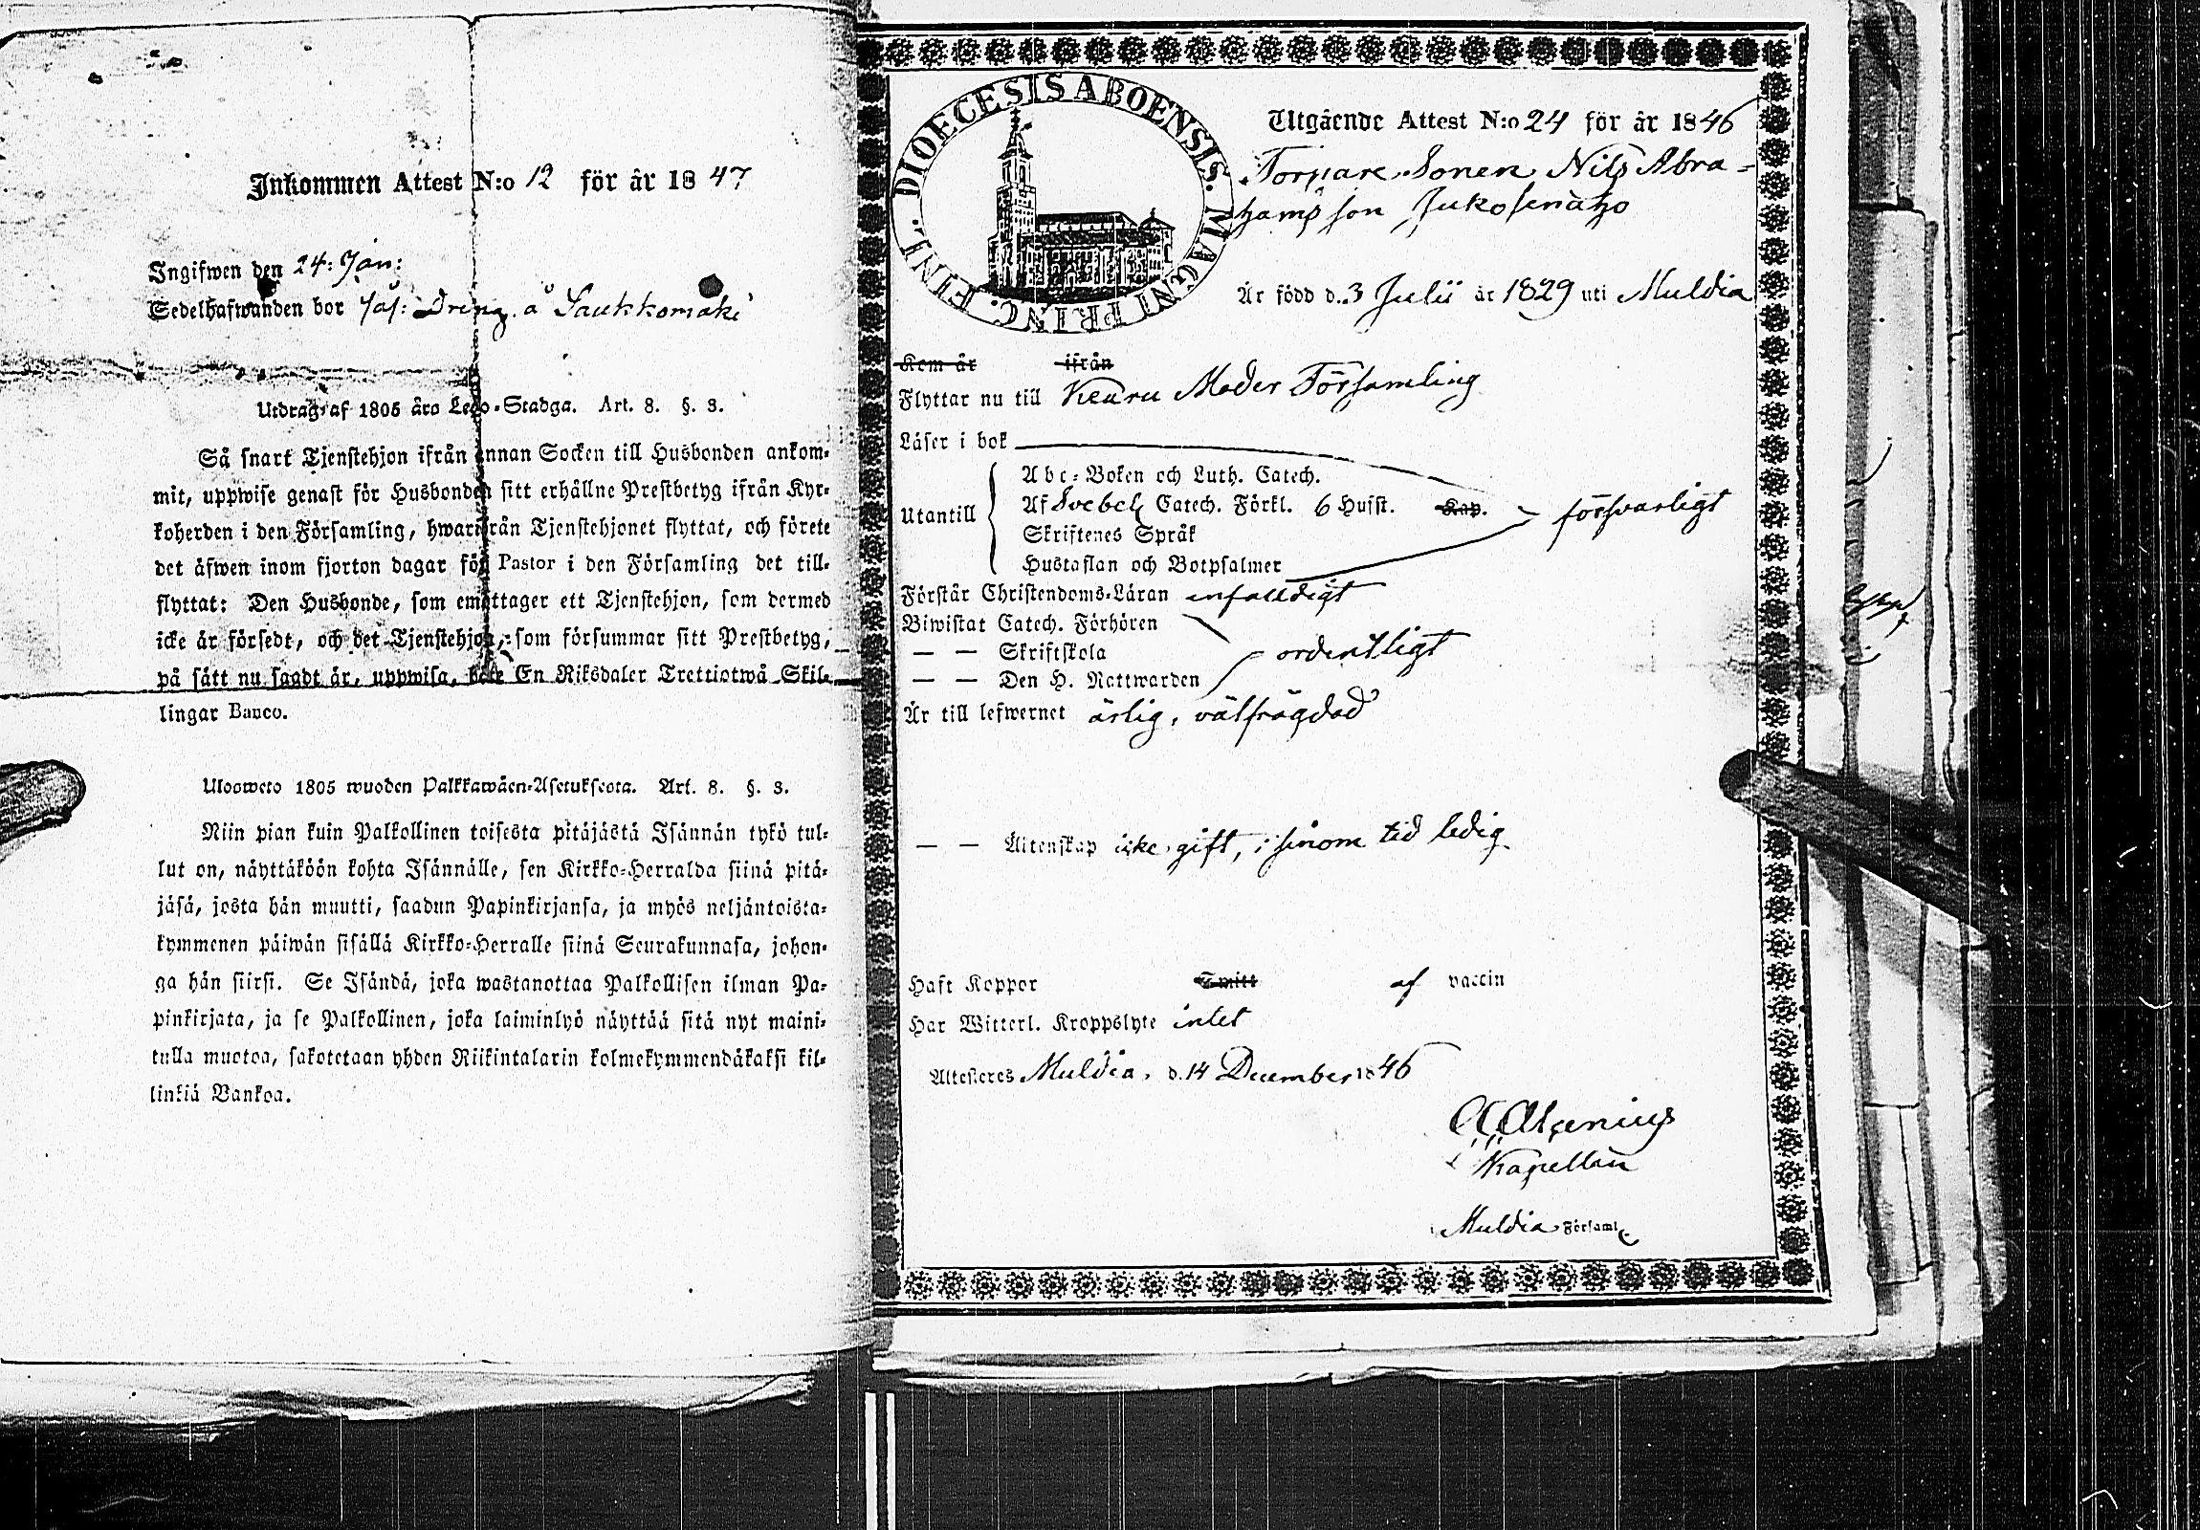 Inkommen Attest N:o 12 för år 1847
Ingifwen den 24: Jan:
Sedelhafwanden bor sås: Dreng å Saukkomäki
Utdrag af 1805 års Lego-Stadga. Art. 8. §. 3.
Så snart Tjenstehjon ifrån annan Socken till Husbonden ankom-
mit, uppwise genast för Husbonden sitt erhållne Prestbetyg ifrån Kyr-
koherden i den Församling, hwarifrån Tjenstehjonet flyttat, och förete
det äfwen inom fjorton dagar för Pastor i den Församling det till-
flyttat: Den Husbonde, som emottager ett Tjenstehjon, som dermed
icke är försedt, och det Tjenstehjon, som försummar sitt Prestbetyg,
på sätt nu sagdt är, uppwisa, böte En Riksdaler Trettiotwå Skil-
lingar Banco.
Ulosweto 1805 wuoden Palkkawäen-Asetuksesta. Art. 8. §. 3.
Niin pian kuin Palkollinen toisesta pitäjästä Isännän tykö tul-
lut on, näyttäköön kohta Isännälle, sen Kirkko-Herralda siinä pitä-
jäsä, josta hän muutti, saadun Papinkirjansa, ja myös neljäntoista-
kymmenen päiwän sisällä Kirkko-Herralle siinä Seurakunnasa, johon-
ga hän siirsi. Se Isändä, joka wastanottaa Palkollisen ilman Pa-
pinkirjata, ja se Palkollinen, joka laiminlyö näyttää sitä nyt maini-
tulla muotoa, sakotetaan yhden Riikintalarin kolmekymmendäkaksi kil-
linkiä Bankoa.
DIOECESIS ABOENSIS. MAGNI PRINC. FINL.
Utgående Attest N:o 24 för år 1846
Torpare Sonen Nils Abra=
hamsson Jukosenaho
Är född d. 3 Julii år 1829 uti Muldia
Kom år ifrån
Flyttar nu till Keuru Moder Församling
Läser i bok
Abc-Boken och Luth. Catech.
Utantill Af Svebel. Catech. Förkl. 6 Hufst. Kap. försvarligt
Skriftenes Språk
Hustaflan och Botpsalmer
Förstår Christendoms-Läran enfalldigt
Biwistat Catech. Förhören
— — Skriftskola ordentligt
— — Den H. Nattwarden
Är till lefwernet ärlig, välfrägdad
— — Äktenskap icke gift, i sinom tid ledig
Haft Koppor Smitt af vaccin
Har Witterl. Kroppslyte intet
Attesteres Muldia, d. 14 December 1846
Kapellan
Muldia Församl.